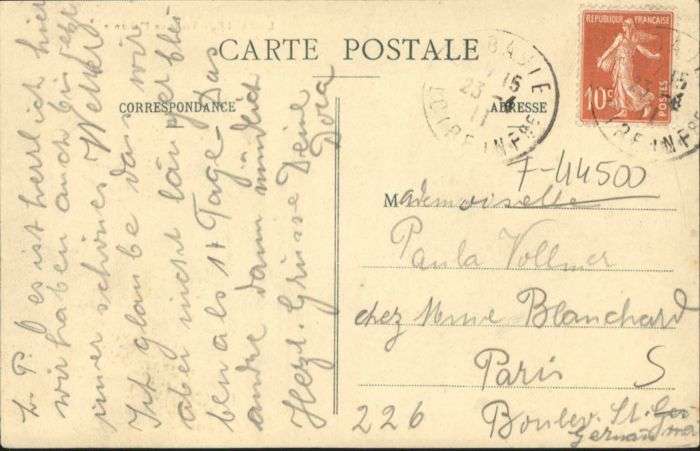 CARTE POSTALE
CORRESPONDANCE
ADRESSE
RÉPUBLIQUE FRANÇAISE
10c
POSTES
BAULE
LOIRE INFRE
F-44500
Mademoiselle
Paula Vollmer
chez Mme Blanchard
Paris S
226 Boulev. St. Ger
Germain
L. P. es ist herrlich hier
wir haben auch bis jetzt
immer schönes Wetter.
Ich glaube dass wir
aber nicht länger blei
ben als 17 Tage. Das
andre dann mündlich
Herzl. Grüsse Deine
Dora